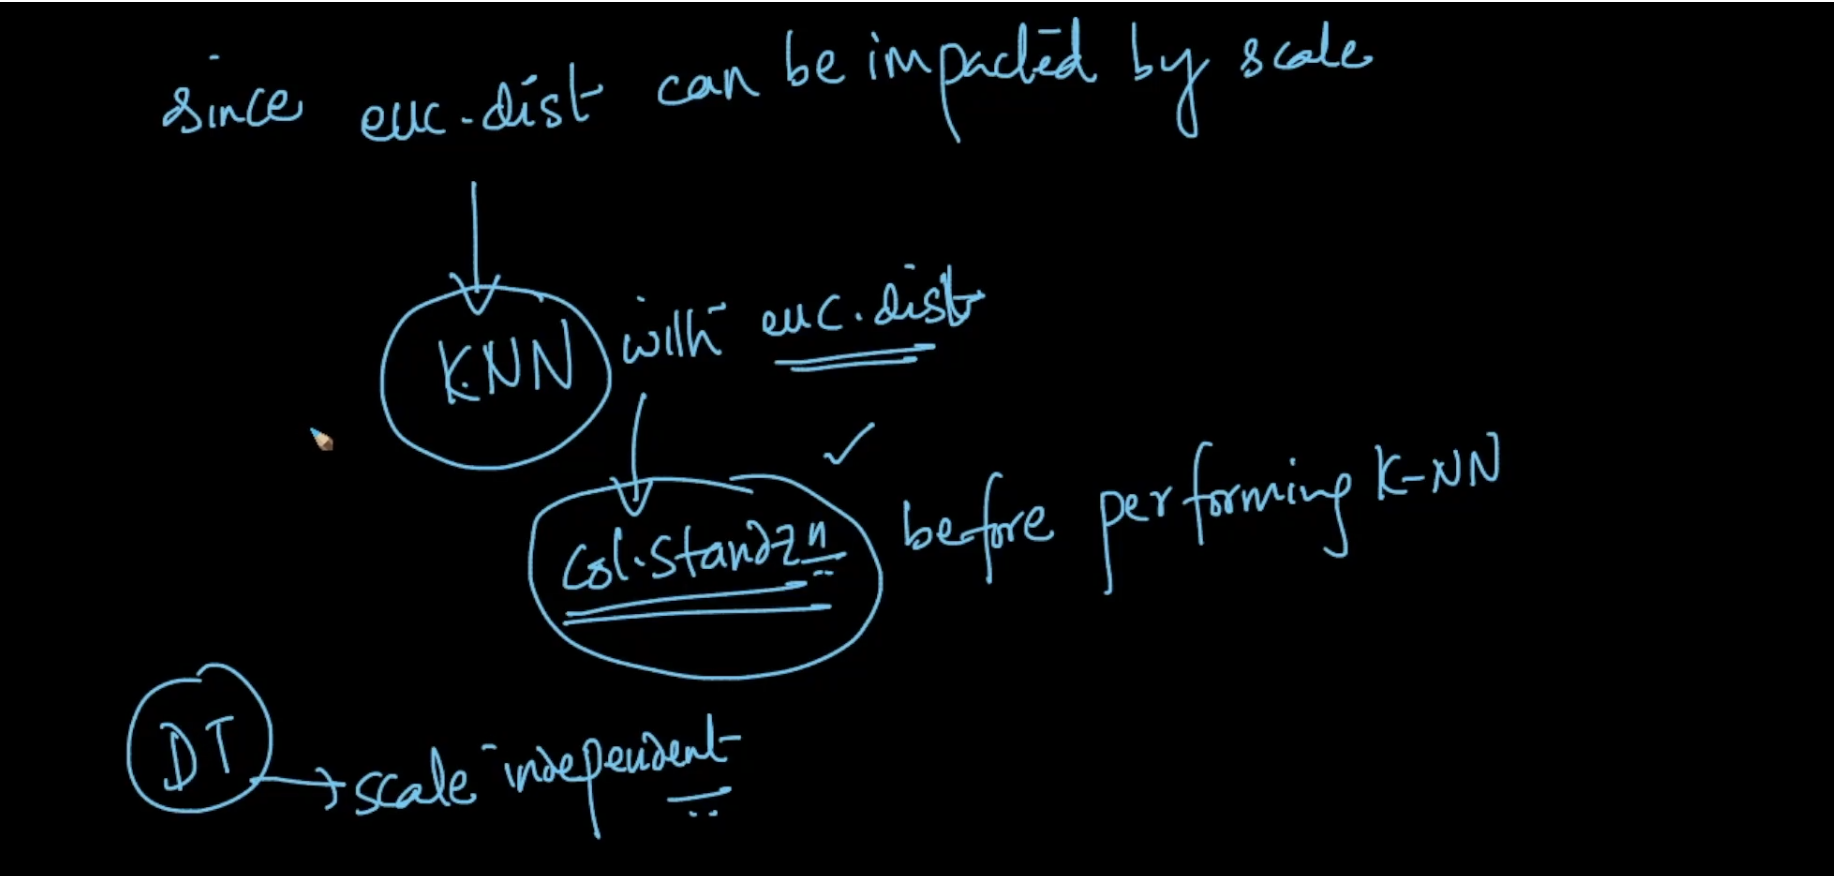 since euc.dist can be impacted by scale
KNN with euc.dist
col.standzn before performing K-NN
DT → scale independent